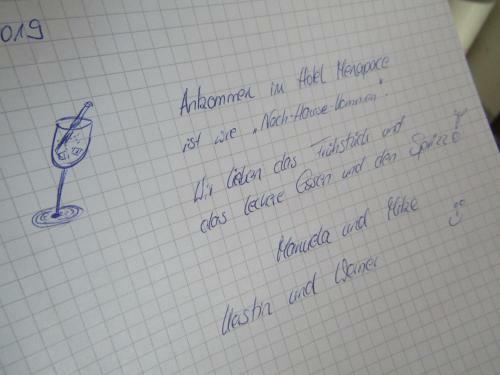 019
Ankommen im Hotel Menapace
ist wie „Nach-Hause-kommen".
Wir lieben das Frühstück und
das leckere Essen und den Spritz!
Manuela und Mike
und Werner